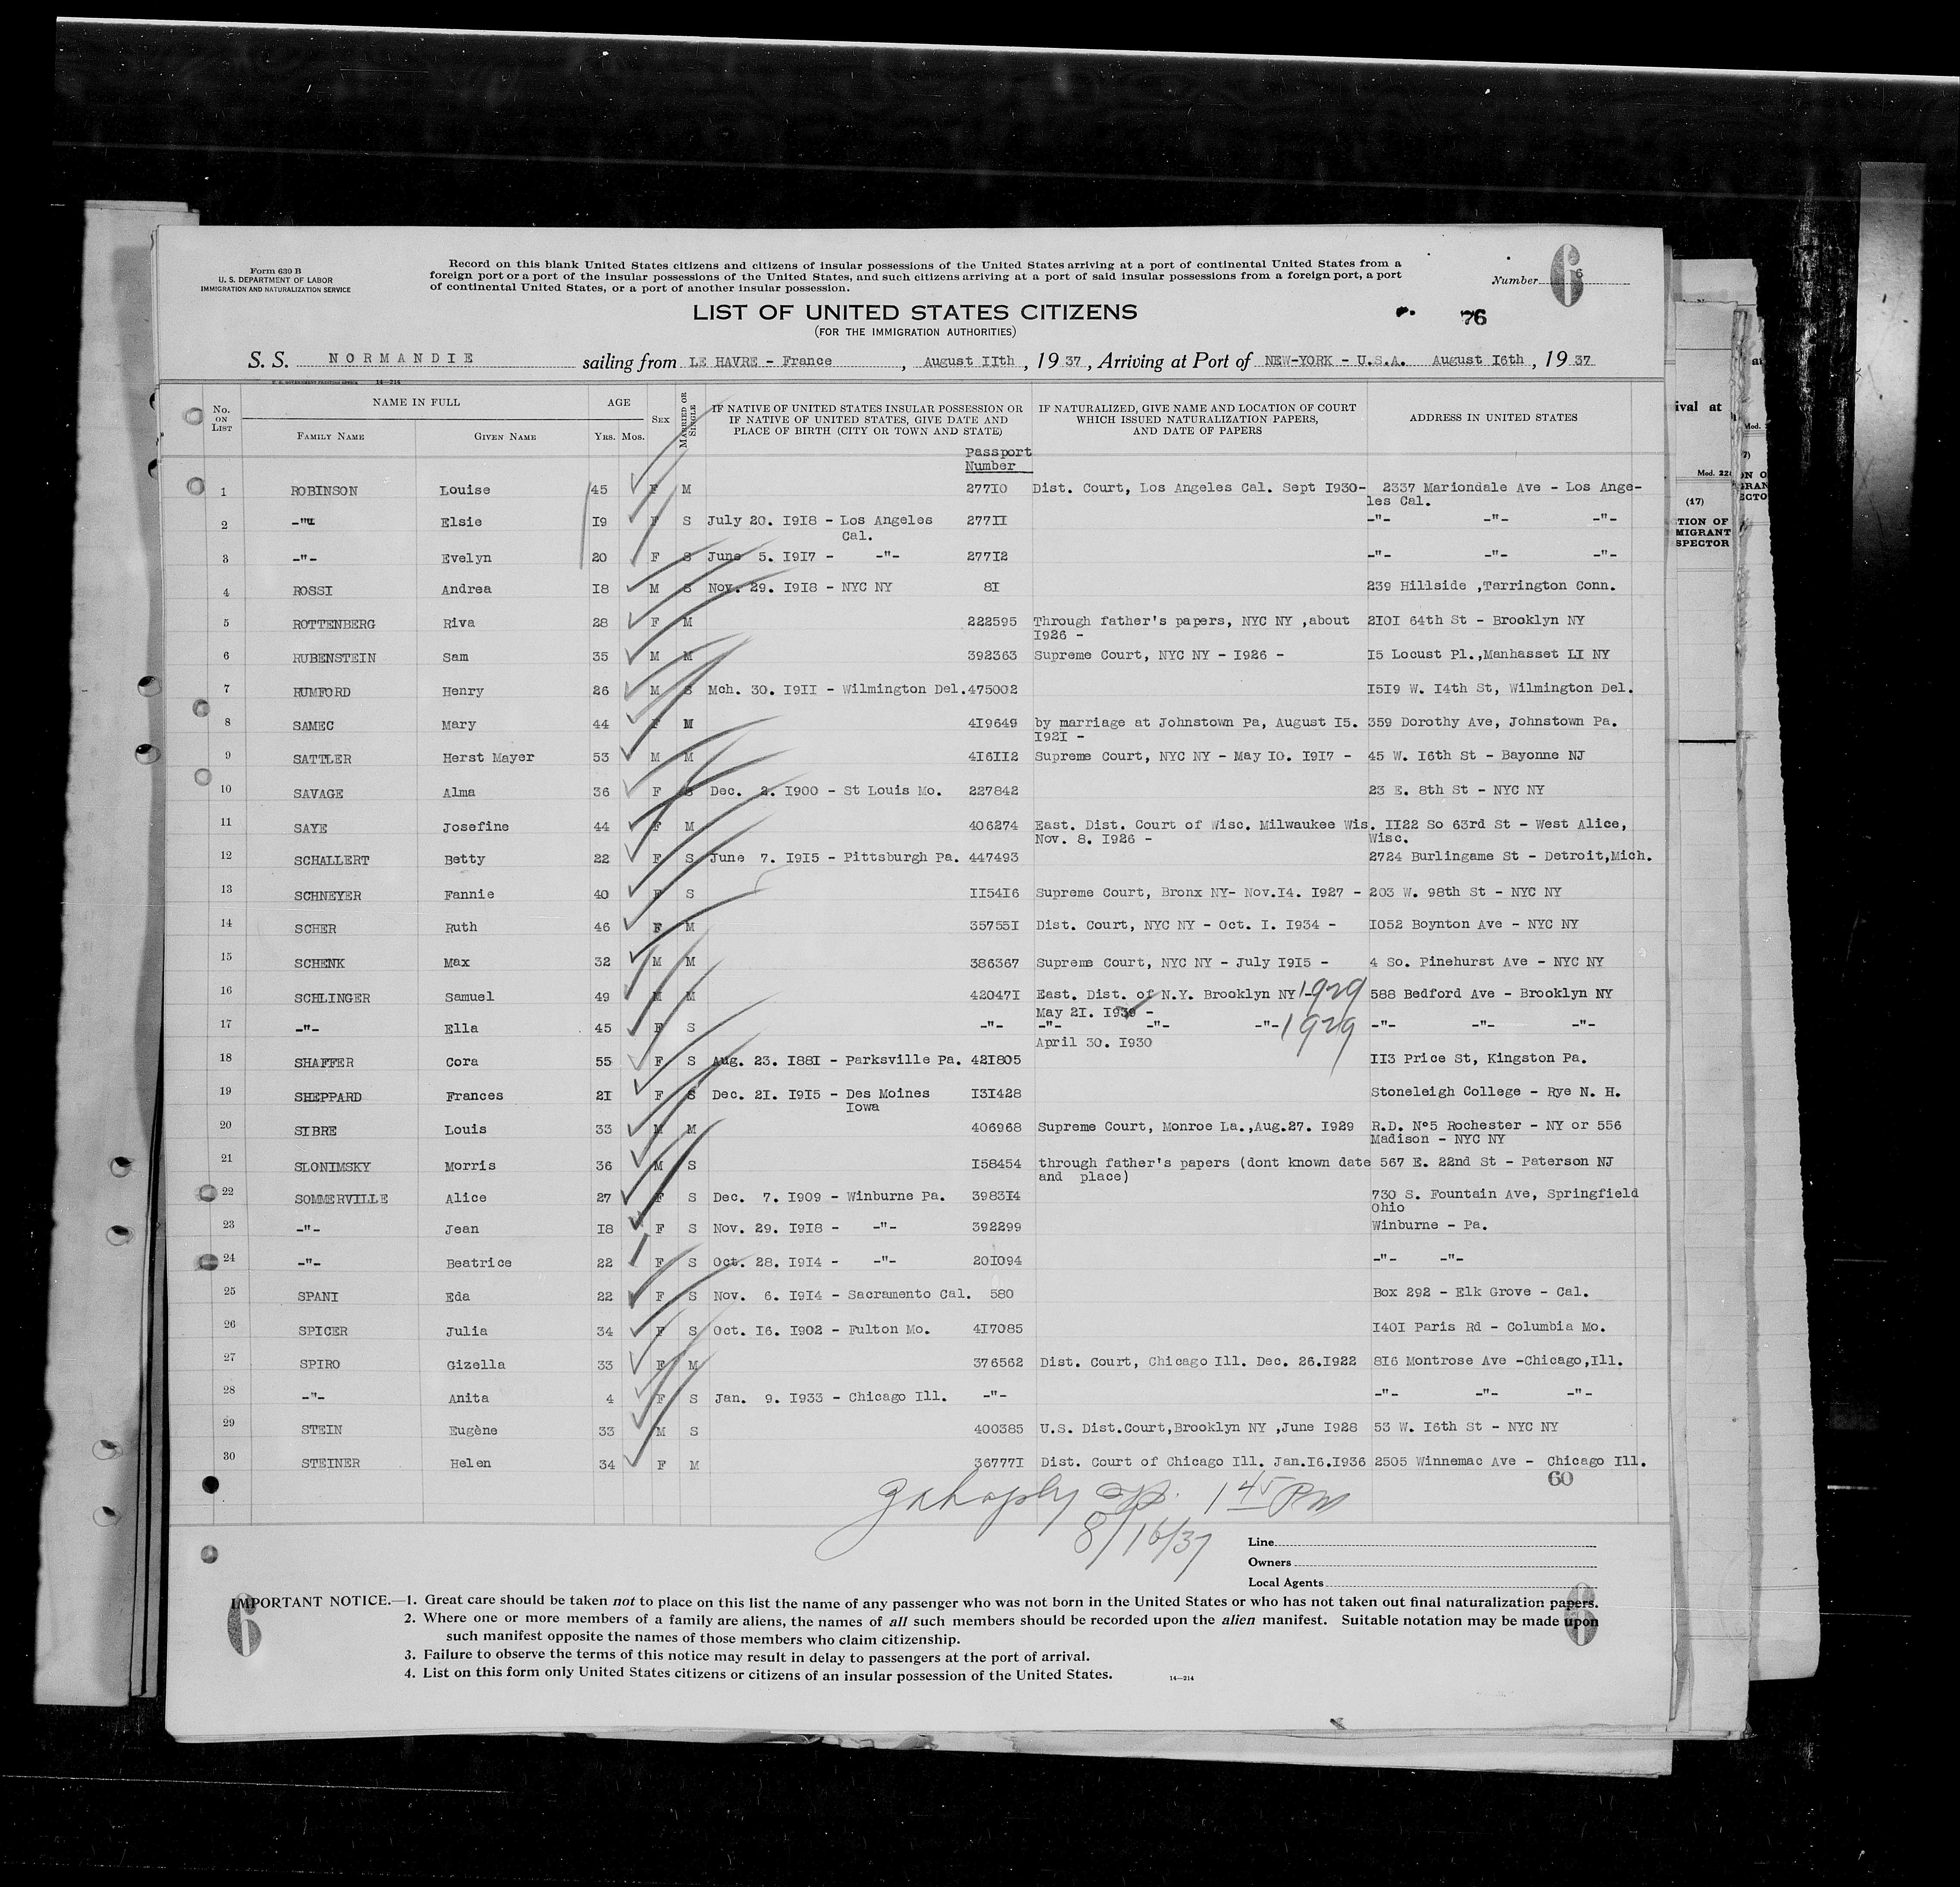 Form 630 B
U. S. DEPARTMENT OF LABOR
IMMIGRATION AND NATURALIZATION SERVICE
Record on this blank United States citizens and citizens of insular possessions of the United States arriving at a port of continental United States from a
foreign port or a port of the insular possessions of the United States, and such citizens arriving at a port of said insular possessions from a foreign port, a port
of continental United States, or a port of another insular possession.
Number 6 6
LIST OF UNITED STATES CITIZENS
(FOR THE IMMIGRATION AUTHORITIES)
76
S. S. NORMANDIE sailing from LE HAVRE - France, August IIth, 1937, Arriving at Port of NEW-YORK - U.S.A. August I6th, 1937
U. S. GOVERNMENT PRINTING OFFICE 14—214
No. ON LIST NAME IN FULL AGE SEX MARRIED OR SINGLE IF NATIVE OF UNITED STATES INSULAR POSSESSION OR IF NATIVE OF UNITED STATES, GIVE DATE AND PLACE OF BIRTH (CITY OR TOWN AND STATE) IF NATURALIZED, GIVE NAME AND LOCATION OF COURT WHICH ISSUED NATURALIZATION PAPERS, AND DATE OF PAPERS ADDRESS IN UNITED STATES
FAMILY NAME GIVEN NAME YRS. MOS.
Passport
Number
1 ROBINSON Louise 45 F M 277I0 Dist. Court, Los Angeles Cal. Sept I930- 2337 Mariondale Ave - Los Ange-
les Cal.
2 -"- Elsie I9 F S July 20. I9I8 - Los Angeles 277II -"- -"- -"-
Cal.
3 -"- Evelyn 20 F S June 5. I9I7 - -"- 277I2 -"- -"- -"-
4 ROSSI Andrea I8 M S Nov. 29. I9I8 - NYC NY 8I 239 Hillside ,Tarrington Conn.
5 ROTTENBERG Riva 28 F M 222595 Through father's papers, NYC NY ,about 2I0I 64th St - Brooklyn NY
I926 -
6 RUBENSTEIN Sam 35 M M 392363 Supreme Court, NYC NY - I926 - I5 Locust Pl.,Manhasset LI NY
7 RUMFORD Henry 26 M S Mch. 30. I9II - Wilmington Del. 475002 I5I9 W. I4th St, Wilmington Del.
8 SAMEC Mary 44 F M 4I9649 by marriage at Johnstown Pa, August I5. 359 Dorothy Ave, Johnstown Pa.
I92I -
9 SATTLER Herst Mayer 53 M M 4I6II2 Supreme Court, NYC NY - May I0. I9I7 - 45 W. I6th St - Bayonne NJ
10 SAVAGE Alma 36 F S Dec. 2. I900 - St Louis Mo. 227842 23 E. 8th St - NYC NY
11 SAYE Josefine 44 F M 406274 East. Dist. Court of Wisc. Milwaukee Wis. II22 So 63rd St - West Alice,
Nov. 8. I926 - Wisc.
12 SCHALLERT Betty 22 F S June 7. I9I5 - Pittsburgh Pa. 447493 2724 Burlingame St - Detroit,Mich.
13 SCHNEYER Fannie 40 F S II54I6 Supreme Court, Bronx NY- Nov.I4. I927 - 203 W. 98th St - NYC NY
14 SCHER Ruth 46 F M 35755I Dist. Court, NYC NY - Oct. I. I934 - I052 Boynton Ave - NYC NY
15 SCHENK Max 32 M M 386367 Supreme Court, NYC NY - July I9I5 - 4 So. Pinehurst Ave - NYC NY
16 SCHLINGER Samuel 49 M M 42047I East. Dist. of N.Y. Brooklyn NY - 1929 588 Bedford Ave - Brooklyn NY
May 2I. I930 -
17 -"- Ella 45 F S -"- -"- -"- -"- 1929 -"- -"- -"-
April 30. I930
18 SHAFFER Cora 55 F S Aug. 23. I88I - Parksville Pa. 42I805 II3 Price St, Kingston Pa.
19 SHEPPARD Frances 2I F S Dec. 2I. I9I5 - Des Moines I3I428 Stoneleigh College - Rye N. H.
Iowa
20 SIBRE Louis 33 M M 406968 Supreme Court, Monroe La.,Aug.27. I929 R.D. N°5 Rochester - NY or 556
Madison - NYC NY
21 SLONIMSKY Morris 36 M S I58454 through father's papers (dont known date 567 E. 22nd St - Paterson NJ
and place)
22 SOMMERVILLE Alice 27 F S Dec. 7. I909 - Winburne Pa. 3983I4 730 S. Fountain Ave, Springfield
Ohio
23 -"- Jean I8 F S Nov. 29. I9I8 - -"- 392299 Winburne - Pa.
24 -"- Beatrice 22 F S Oct. 28. I9I4 - -"- 20I094 -"- -"-
25 SPANI Eda 22 F S Nov. 6. I9I4 - Sacramento Cal. 580 Box 292 - Elk Grove - Cal.
26 SPICER Julia 34 F S Oct. I6. I902 - Fulton Mo. 4I7085 I40I Paris Rd - Columbia Mo.
27 SPIRO Gizella 33 F M 376562 Dist. Court, Chicago Ill. Dec. 26.I922 8I6 Montrose Ave -Chicago,Ill.
28 -"- Anita 4 F S Jan. 9. I933 - Chicago Ill. -"- -"- -"- -"-
29 STEIN Eugène 33 M S 400385 U.S. Dist.Court,Brooklyn NY ,June I928 53 W. I6th St - NYC NY
30 STEINER Helen 34 F M 36777I Dist. Court of Chicago Ill. Jan.I6.I936 2505 Winnemac Ave - Chicago Ill.
60
1 45 PM
8/16/37
Line
Owners
Local Agents
IMPORTANT NOTICE.—1. Great care should be taken not to place on this list the name of any passenger who was not born in the United States or who has not taken out final naturalization papers.
2. Where one or more members of a family are aliens, the names of all such members should be recorded upon the alien manifest. Suitable notation may be made upon
such manifest opposite the names of those members who claim citizenship.
3. Failure to observe the terms of this notice may result in delay to passengers at the port of arrival.
4. List on this form only United States citizens or citizens of an insular possession of the United States. 14—214
6 6
ival at
Mod. 22
(17)
TION OF
MIGRANT
SPECTOR